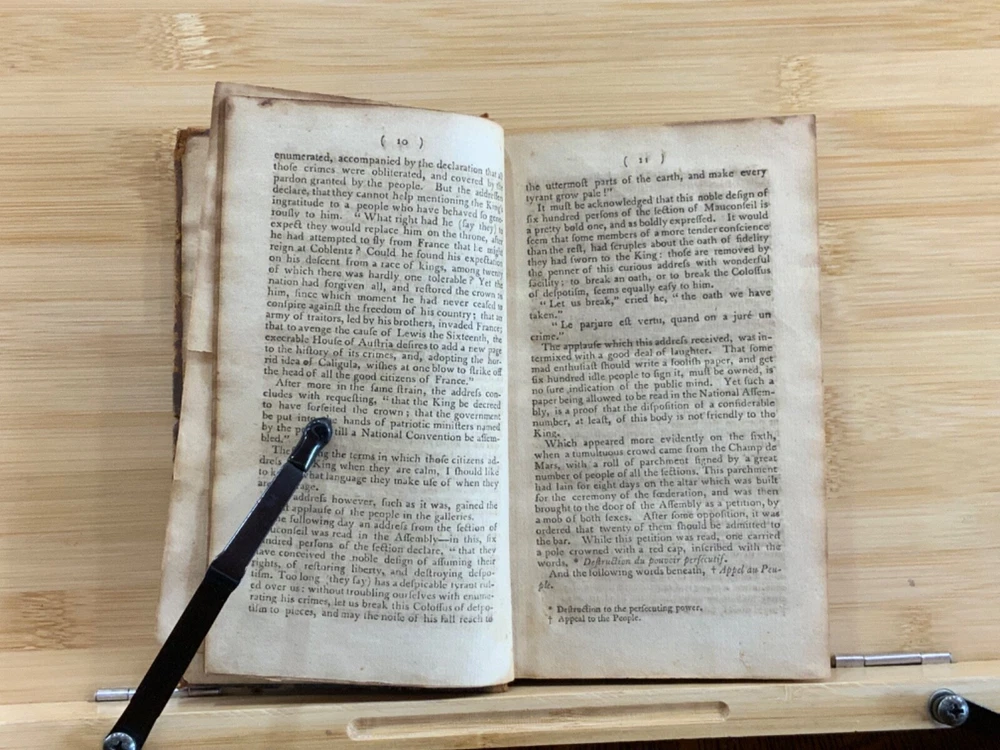 ( 10 )
enumerated, accompanied by the declaration that all
thoſe crimes were obliterated, and covered by the
pardon granted by the people. But the addreſſers
declare, that they cannot help mentioning the King's
ingratitude to a people who have behaved ſo gene-
rouſly to him. “What right had he (ſay they) to
expect they would replace him on the throne, after
he had attempted to fly from France that he might
reign at Coblentz? Could he found his expectation
on his deſcent from a race of kings, among twenty
of which there was hardly one tolerable? Yet the
nation had forgiven all, and reſtored the crown to
him, ſince which moment he had never ceaſed to
conſpire againſt the freedom of his country; that an
army of traitors, led by his brothers, invaded France;
that to avenge the cauſe of Lewis the Sixteenth, the
execrable Houſe of Auſtria deſires to add a new page
to the hiſtory of its crimes, and, adopting the hor-
rid idea of Caligula, wiſhes at one blow to ſtrike off
the head of all the good citizens of France.”
After more in the ſame ſtrain, the addreſs con-
cludes with requeſting, “that the King be decreed
to have forfeited the crown; that the government
be put into the hands of patriotic miniſters named
by the till a National Convention be aſſem-
bled.”
the terms in which thoſe citizens ad-
King when they are calm, I ſhould like
to what language they make uſe of when they
are
addreſs however, ſuch as it was, gained the
applauſe of the people in the galleries.
following day an addreſs from the ſection of
Mauconſeil was read in the Aſſembly—in this, ſix
hundred perſons of the ſection declare, “that they
have conceived the noble deſign of aſſuming their
rights, of reſtoring liberty, and deſtroying deſpo-
tiſm. Too long (they ſay) has a deſpicable tyrant rul-
ed over us: without troubling ourſelves with enume-
rating his crimes, let us break this Coloſſus of deſpo-
tiſm to pieces, and may the noiſe of his fall reach to
( 11 )
the uttermoſt parts of the earth, and make every
tyrant grow pale!”
It muſt be acknowledged that this noble deſign of
ſix hundred perſons of the ſection of Mauconſeil is
a pretty bold one, and as boldly expreſſed. It would
ſeem that ſome members of a more tender conſcience
than the reſt, had ſcruples about the oath of fidelity
they had ſworn to the King: thoſe are removed by
the penner of this curious addreſs with wonderful
facility; to break an oath, or to break the Coloſſus
of deſpotiſm, ſeems equally eaſy to him.
“Let us break,” cried he, “the oath we have
taken.”
“Le parjure eſt vertu, quand on a juré un
crime.”
The applauſe which this addreſs received, was in-
termixed with a good deal of laughter. That ſome
mad enthuſiaſt ſhould write a fooliſh paper, and get
ſix hundred idle people to ſign it, muſt be owned, is
no ſure indication of the public mind. Yet ſuch a
paper being allowed to be read in the National Aſſem-
bly, is a proof that the diſpoſition of a conſiderable
number, at leaſt, of this body is not friendly to the
King.
Which appeared more evidently on the ſixth,
when a tumultuous crowd came from the Champ de
Mars, with a roll of parchment ſigned by a great
number of people of all the ſections. This parchment
had lain for eight days on the altar which was built
for the ceremony of the fœderation, and was then
brought to the door of the Aſſembly as a petition, by
a mob of both ſexes. After ſome oppoſition, it was
ordered that twenty of them ſhould be admitted to
the bar. While this petition was read, one carried
a pole crowned with a red cap, inſcribed with the
words, * Deſtruction du pouvoir perſecutif.
And the following words beneath, † Appel au Peu-
ple.
* Deſtruction to the perſecuting power.
† Appeal to the People.